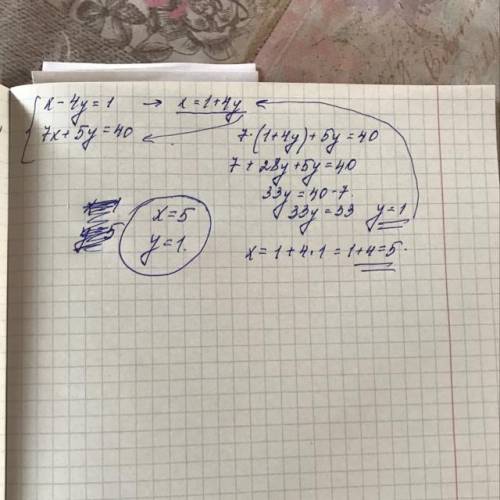 x-4y=1 → x=1+4y
7x+5y=40
7·(1+4y)+5y=40
7+28y+5y=40
33y=40-7
33y=33 y=1
x=1+4·1=1+4=5
x=5
y=1.